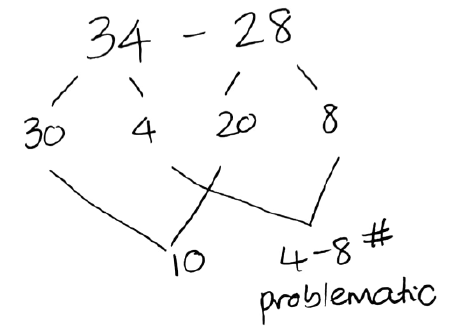 34 - 28
30 4 20 8
10 4-8 #
problematic